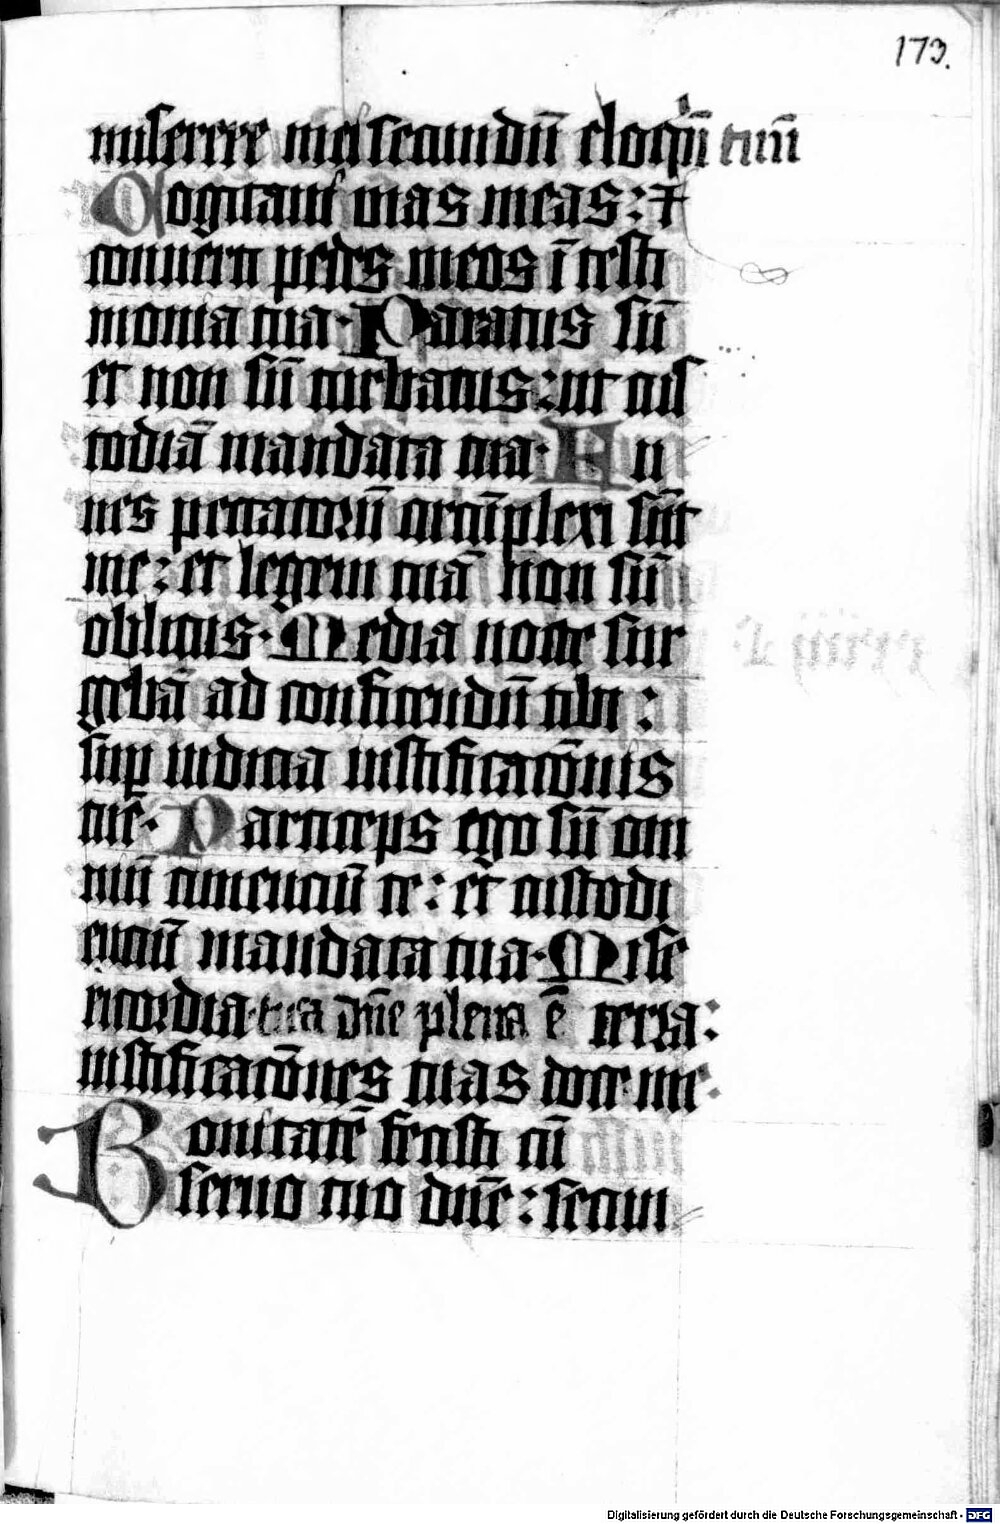 173.
miserere mei secundū eloqͥū tuū
Cogitaui vias meas: ⁊
conuerti pedes meos ī testi
monia tua. Paratus sū
et non sū turbatus: ut cus
todiā mandata tua. Fu
nes peccatorū circūplexi sūt
me: et legem tuā non sū
oblitus. Media nocte sur
gebā ad confitendū tibi:
sup iudicia iustificacōnis
tue. Particeps ego sū om
niū timenciū te: et custodi
enciū mandata tua. Mise
ricordia tua dn̄e plena ē terra:
iustificacōnes tuas doce me.
Bonitatē fecisti cū
seruo tuo dn̄e: secun
Digitalisierung gefördert durch die Deutsche Forschungsgemeinschaft - DFG